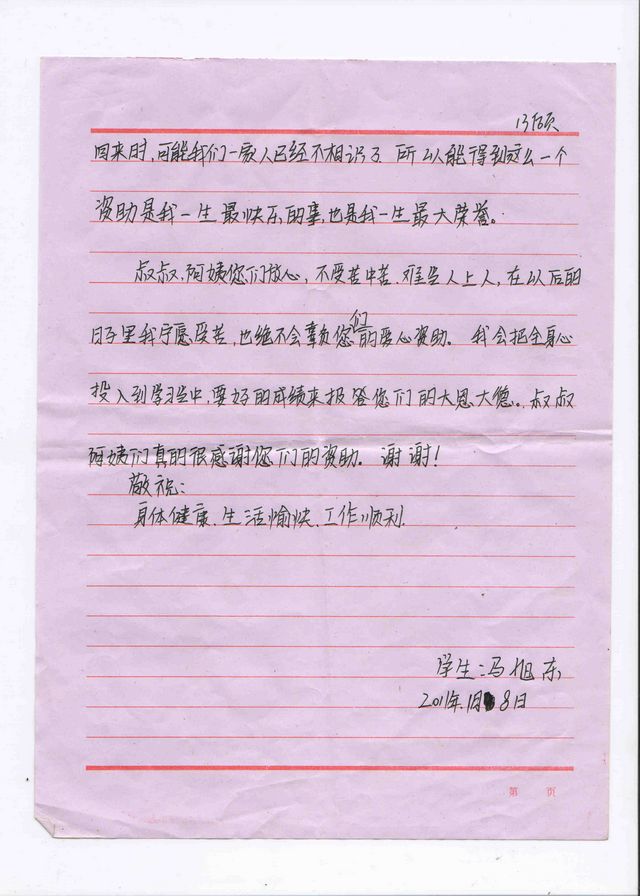 回来时,可能我们一家人已经不相识了.所以能得到这么一个
资助是我一生最快乐的事,也是我一生最大荣誉。
叔叔,阿姨您们放心,不受苦中苦.难当人上人,在以后的
日子里我宁愿受苦,也绝不会辜负您们的爱心资助。我会把全身心
投入到学习当中,要好的成绩来报答您们的大恩大德。叔叔
阿姨们真的很感谢您们的资助。谢谢!
敬祝:
身体健康.生活愉快.工作顺利.
学生:冯旭东
2011年1月8日
第 页